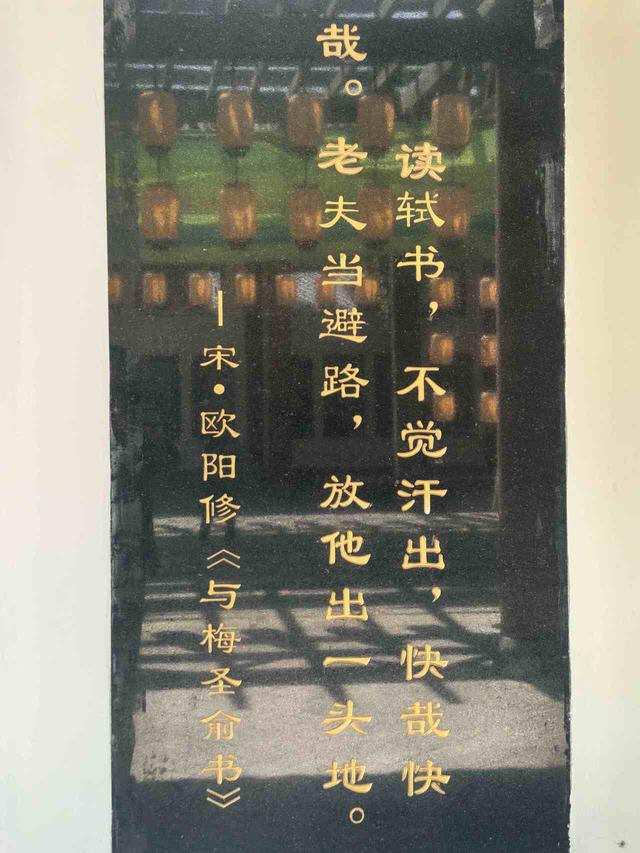 读轼书，不觉汗出，快哉快
哉。老夫当避路，放他出一头地。
—宋•欧阳修《与梅圣俞书》